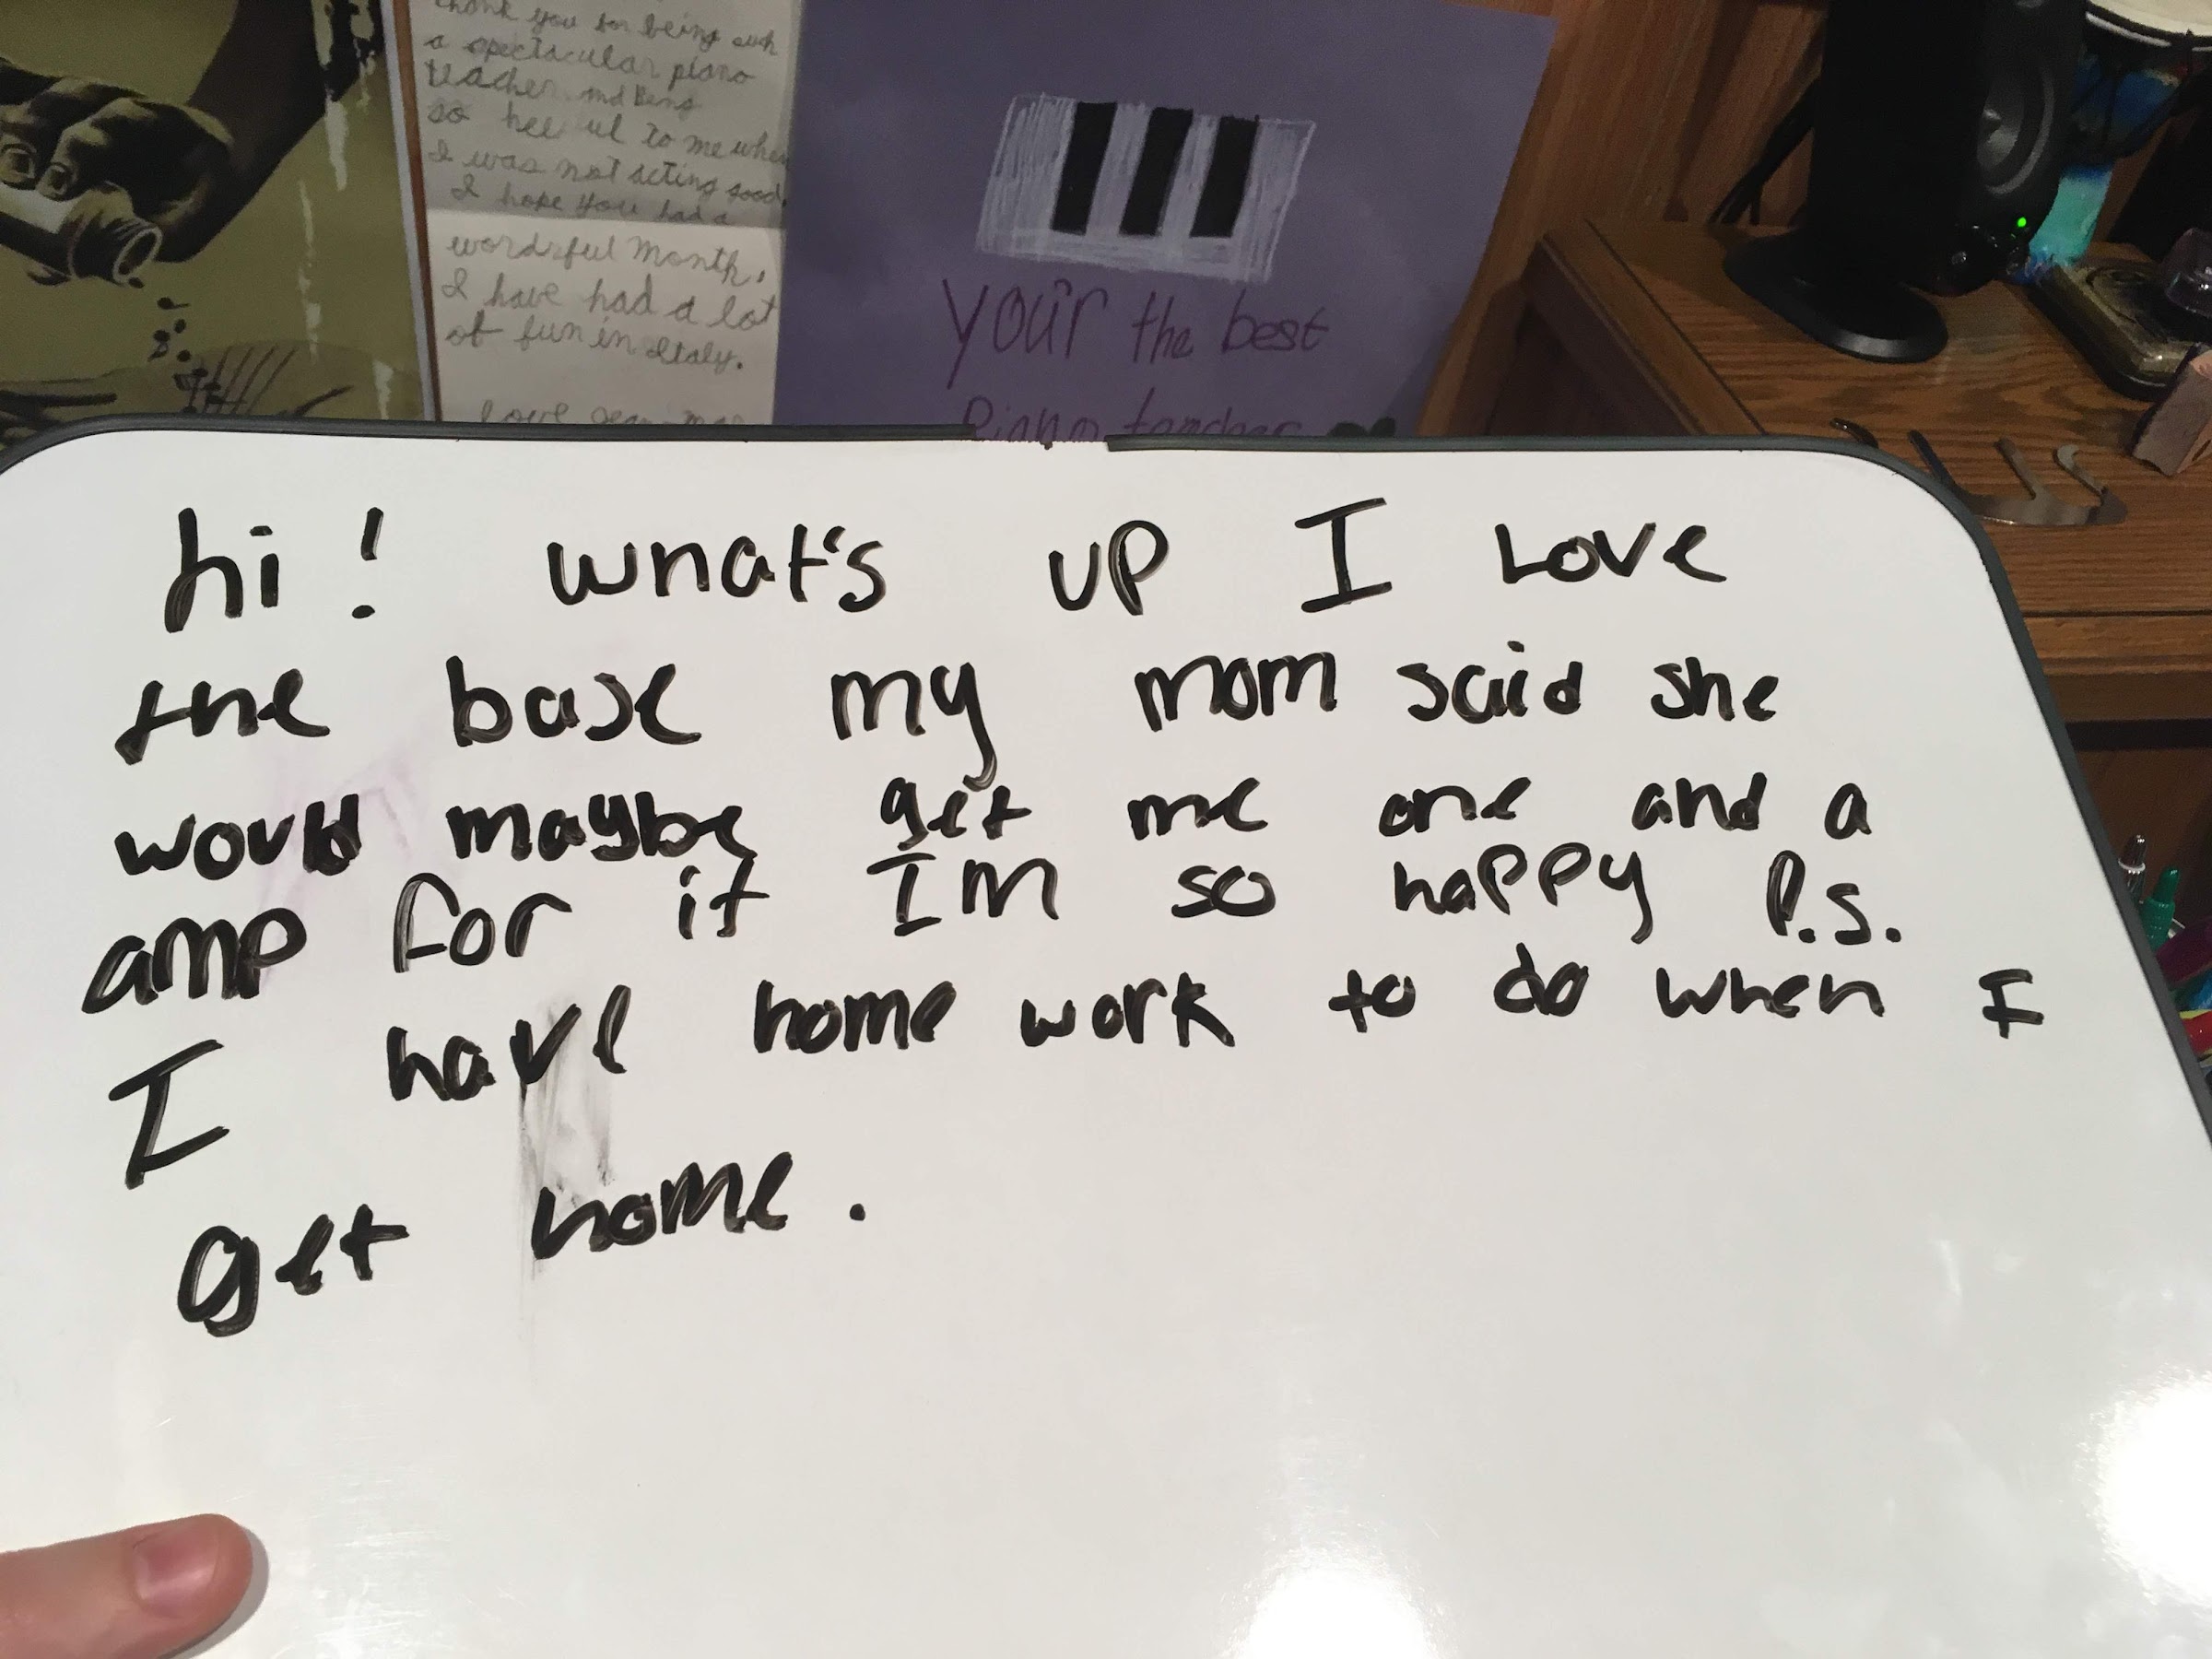 thank you for being such
a spectacular piano
teacher and Being
so to me when
I was not acting good.
I hope you had a
wordsful Month.
I have had a lot
of fun in Italy.
Love
your the best
Piano
hi! what's up I Love
the base my mom said she
would maybe get me one and a
amp for it Im so happy P.s.
I have home work to do when I
get home.